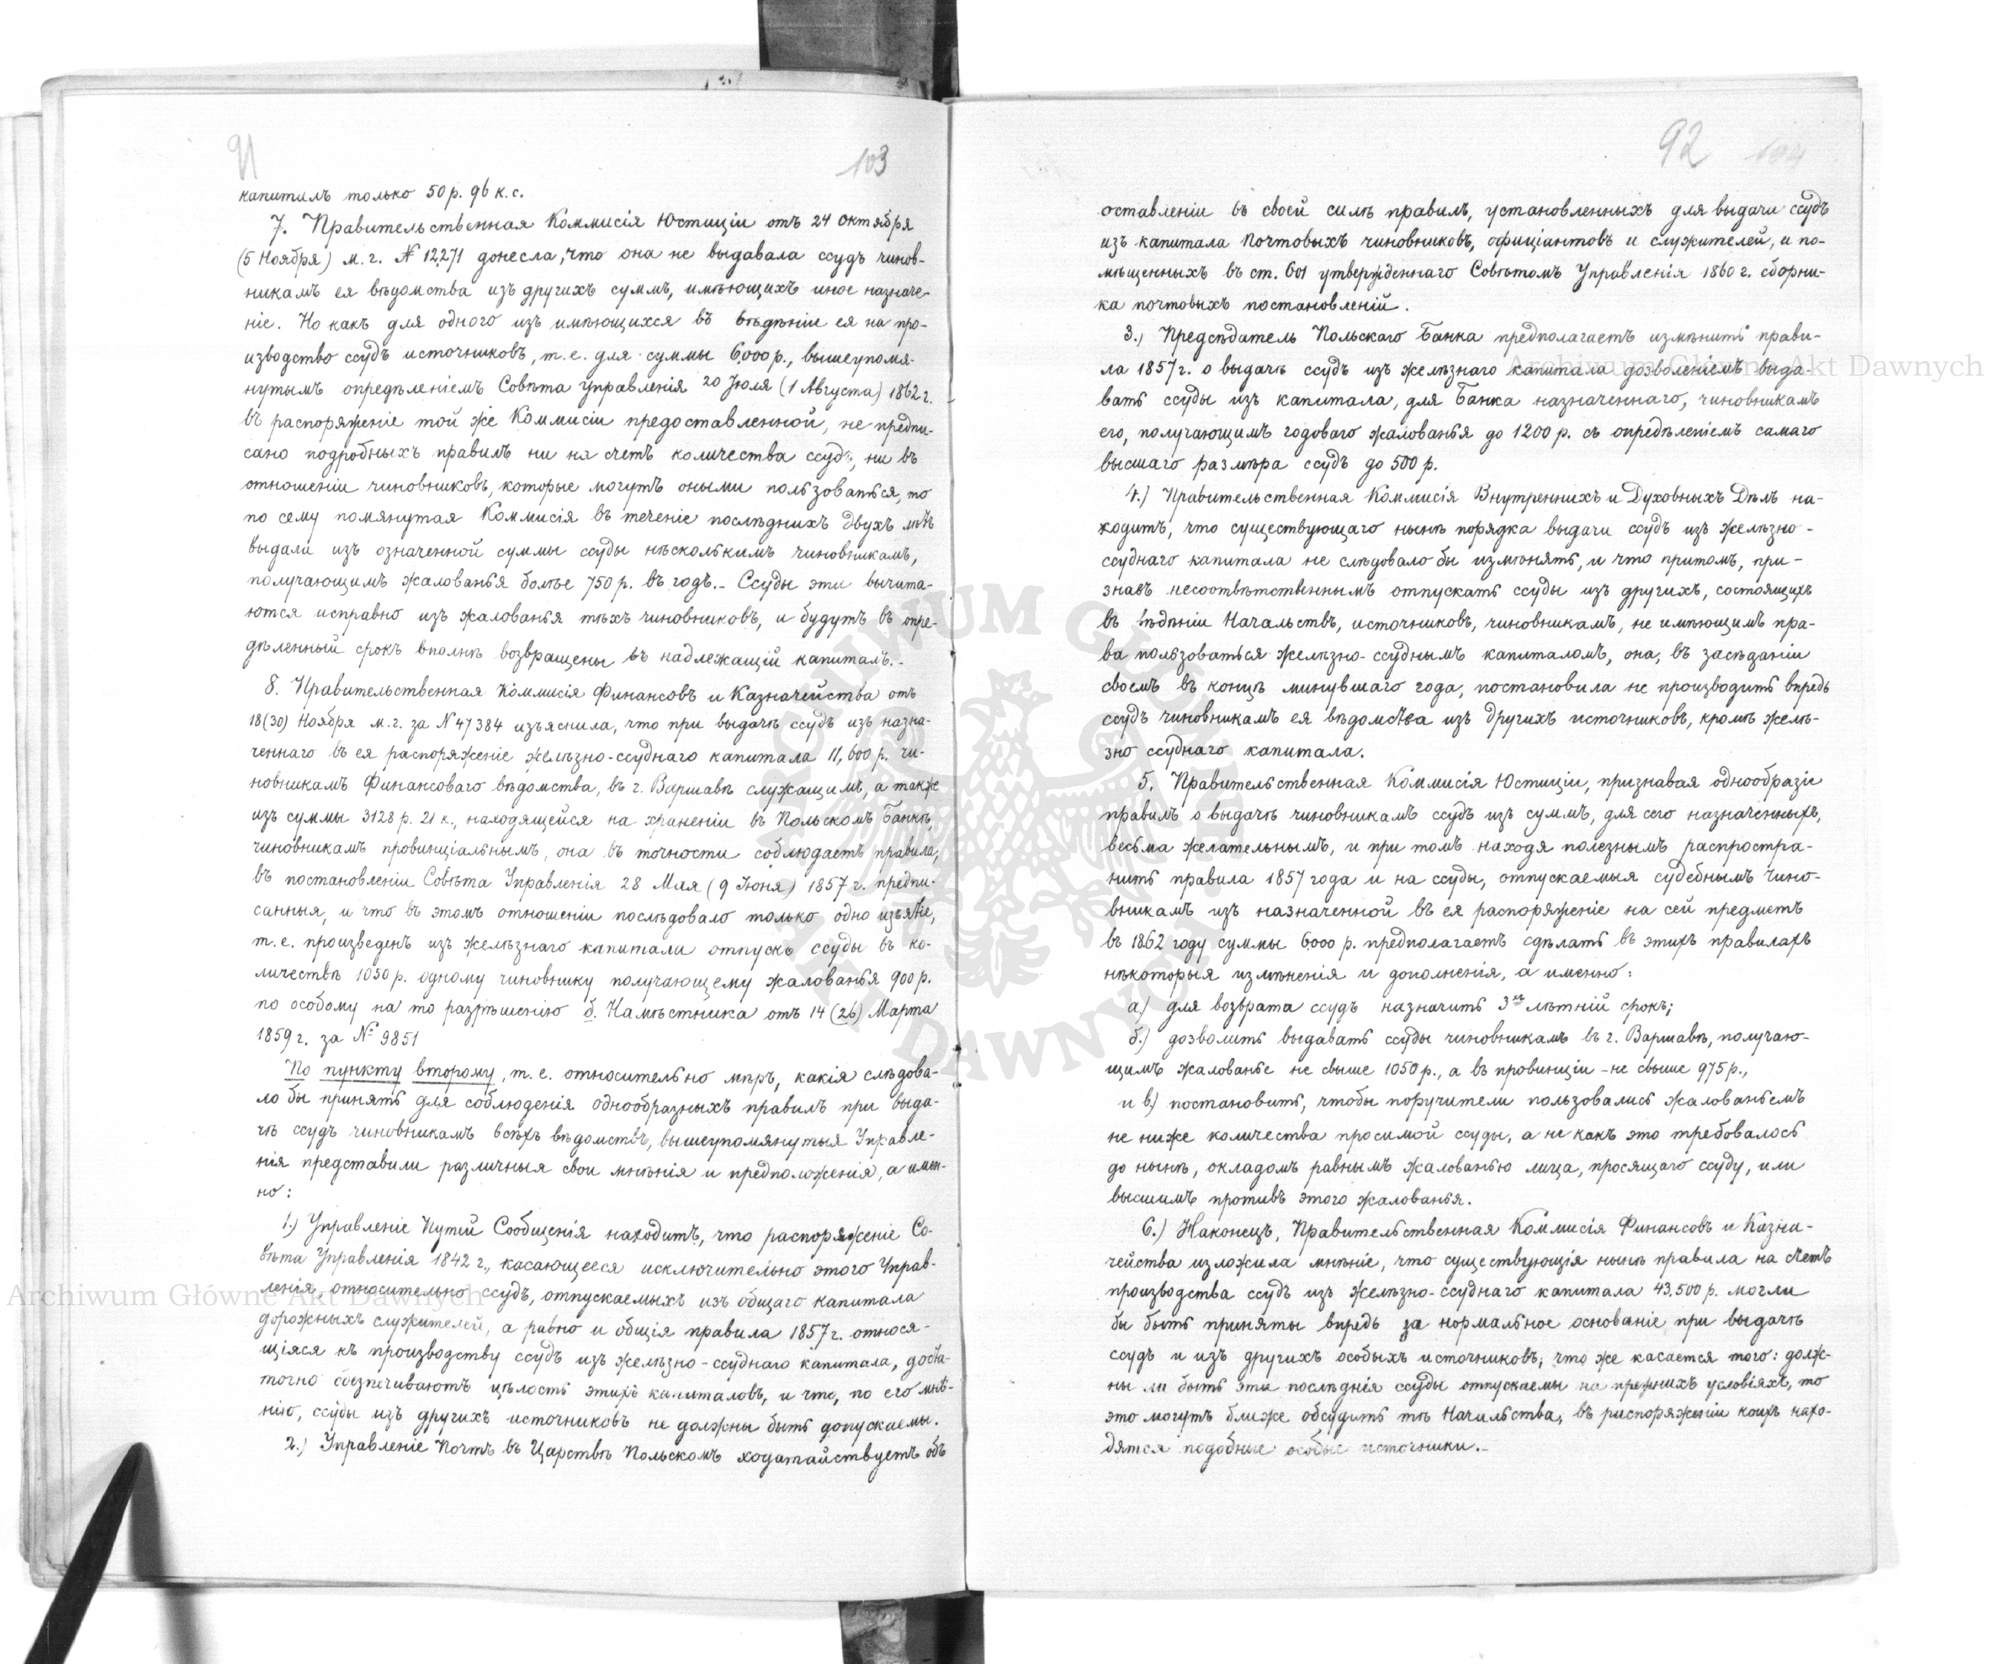 91
103
капиталъ только 50 р. 96 к. с.
7. Правительственная Коммисія Юстиціи отъ 24 октября
(5 Ноября) м. г. № 12,271 донесла, что она не выдавала ссудъ чинов-
никамъ ея вѣдомства изъ другихъ суммъ, имѣющихъ иное назначе-
ніе. Но какъ для одного изъ имѣющихся въ вѣдѣніи ея на про-
изводство ссудъ источниковъ, т. е. для суммы 6,000 р., вышеупомя-
нутымъ опредѣленіемъ Совѣта Управленія 20 Іюля (1 Августа) 1862 г.
въ распоряженіе той же Коммисіи предоставленной, не предпи-
сано подробныхъ правилъ ни на счетъ количества ссудъ, ни въ
отношеніи чиновниковъ, которые могутъ оными пользоваться, то
по сему помянутая Коммисія въ теченіе послѣднихъ двухъ лѣтъ
выдала изъ означенной суммы ссуды нѣсколькимъ чиновникамъ,
получающимъ жалованья болѣе 750 р. въ годъ. - Ссуды эти вычита-
ются исправно изъ жалованья тѣхъ чиновниковъ, и будутъ въ опре-
дѣленный срокъ вполнѣ возвращены въ надлежащій капиталъ. -
8. Правительственная Коммисія Финансовъ и Казначейства отъ
18 (30) Ноября м. г. за № 47384 изъяснила, что при выдачѣ ссудъ изъ назна-
ченнаго въ ея распоряженіе желѣзно-ссуднаго капитала 11,600 р. чи-
новникамъ Финансоваго вѣдомства, въ г. Варшавѣ служащимъ, а также
изъ суммы 3128 р. 21 к., находящейся на храненіи въ Польскомъ Банкѣ,
чиновникамъ провинціальнымъ, она въ точности соблюдаетъ правила,
въ постановленіи Совѣта Управленія 28 Мая (9 Іюня) 1857 г. предпи-
санныя, и что въ этомъ отношеніи послѣдовало только одно изъятіе,
т. е. произведенъ изъ желѣзнаго капитала отпускъ ссуды въ ко-
личествѣ 1050 р. одному чиновнику получающему жалованья 900 р.
по особому на то разрѣшенію б. Намѣстника отъ 14 (26) Марта
1859 г. за № 9851
По пункту второму, т. е. относительно мѣръ, какія слѣдова-
ло бы принять для соблюденія однообразныхъ правилъ при выда-
чѣ ссудъ чиновникамъ всѣхъ вѣдомствъ, вышеупомянутыя Управле-
нія представили различныя свои мнѣнія и предположенія, а имен-
но:
1.) Управленіе Путей Сообщенія находитъ, что распоряженіе Со-
вѣта Управленія 1842 г., касающееся исключительно этого Управ-
ленія, относительно ссудъ, отпускаемыхъ изъ общаго капитала
дорожныхъ служителей, а равно и общія правила 1857 г. относя-
щіяся къ производству ссудъ изъ желѣзно-ссуднаго капитала, доста-
точно обезпечиваютъ цѣлость этихъ капиталовъ, и что, по его мнѣ-
нію, ссуды изъ другихъ источниковъ не должны быть допускаемы.
2.) Управленіе Почтъ въ Царствѣ Польскомъ ходатайствуетъ объ
92
104
оставленіи въ своей силѣ правилъ, установленныхъ для выдачи ссудъ
изъ капитала почтовыхъ чиновниковъ, официантовъ и служителей, и по-
мѣщенныхъ въ ст. 601 утвержденнаго Совѣтомъ Управленія 1860 г. сборни-
ка почтовыхъ постановленій.
3.) Предсѣдатель Польскаго Банка предполагаетъ измѣнить прави-
ла 1857 г. о выдачѣ ссудъ изъ желѣзнаго капитала дозволеніемъ выда-
вать ссуды изъ капитала, для Банка назначеннаго, чиновникамъ
его, получающимъ годоваго жалованья до 1200 р. съ опредѣленіемъ самаго
высшаго размѣра ссудъ до 500 р.
4.) Правительственная Коммисія Внутреннихъ и Духовныхъ Дѣлъ на-
ходитъ, что существующаго нынѣ порядка выдачи ссудъ изъ желѣзно-
ссуднаго капитала не слѣдовало бы измѣнять, и что притомъ, при-
знавъ несоотвѣтственнымъ отпускать ссуды изъ другихъ, состоящихъ
въ вѣдѣніи Начальствъ, источниковъ, чиновникамъ, не имѣющимъ пра-
ва пользоваться желѣзно-ссуднымъ капиталомъ, она, въ засѣданіи
своемъ въ концѣ минувшаго года, постановила не производить впредь
ссудъ чиновникамъ ея вѣдомства изъ другихъ источниковъ, кромѣ желѣ-
зно ссуднаго капитала.
5. Правительственная Коммисія Юстиціи, признавая однообразіе
правилъ о выдачѣ чиновникамъ ссудъ изъ суммъ, для сего назначенныхъ,
весьма желательнымъ, и при томъ находя полезнымъ распростра-
нить правила 1857 года и на ссуды, отпускаемыя судебнымъ чино-
вникамъ изъ назначенной въ ея распоряженіе на сей предметъ
въ 1862 году суммы 6000 р. предполагаетъ сдѣлать въ этихъ правилахъ
нѣкоторыя измѣненія и дополненія, а именно:
а) для возврата ссудъ назначить 3хъ лѣтній срокъ;
б.) дозволить выдавать ссуды чиновникамъ въ г. Варшавѣ, получаю-
щимъ жалованье не свыше 1050 р., а въ провинціи - не свыше 975 р.,
и в.) постановить, чтобы поручители пользовались жалованьемъ
не ниже количества просимой ссуды, а не какъ это требовалось
до нынѣ, окладомъ равнымъ жалованью лица, просящаго ссуду, или
высшимъ противъ этого жалованья.
6.) Наконецъ, Правительственная Коммисія Финансовъ и Казна-
чейства изложила мнѣніе, что существующія нынѣ правила на счетъ
производства ссудъ изъ желѣзно-ссуднаго капитала 43,500 р. могли
бы быть приняты впредь за нормальное основаніе при выдачѣ
ссудъ и изъ другихъ особыхъ источниковъ; что же касается того: долж-
ны ли быть эти послѣднія ссуды отпускаемы на прежнихъ условіяхъ, то
это могутъ ближе обсудить тѣ Начальства, въ распоряженіи коихъ нахо-
дятся подобные особые источники. -
Archiwum Główne Akt Dawnych
Archiwum Główne Akt Dawnych
ARCHIWUM GŁÓWNE AKT DAWNYCH